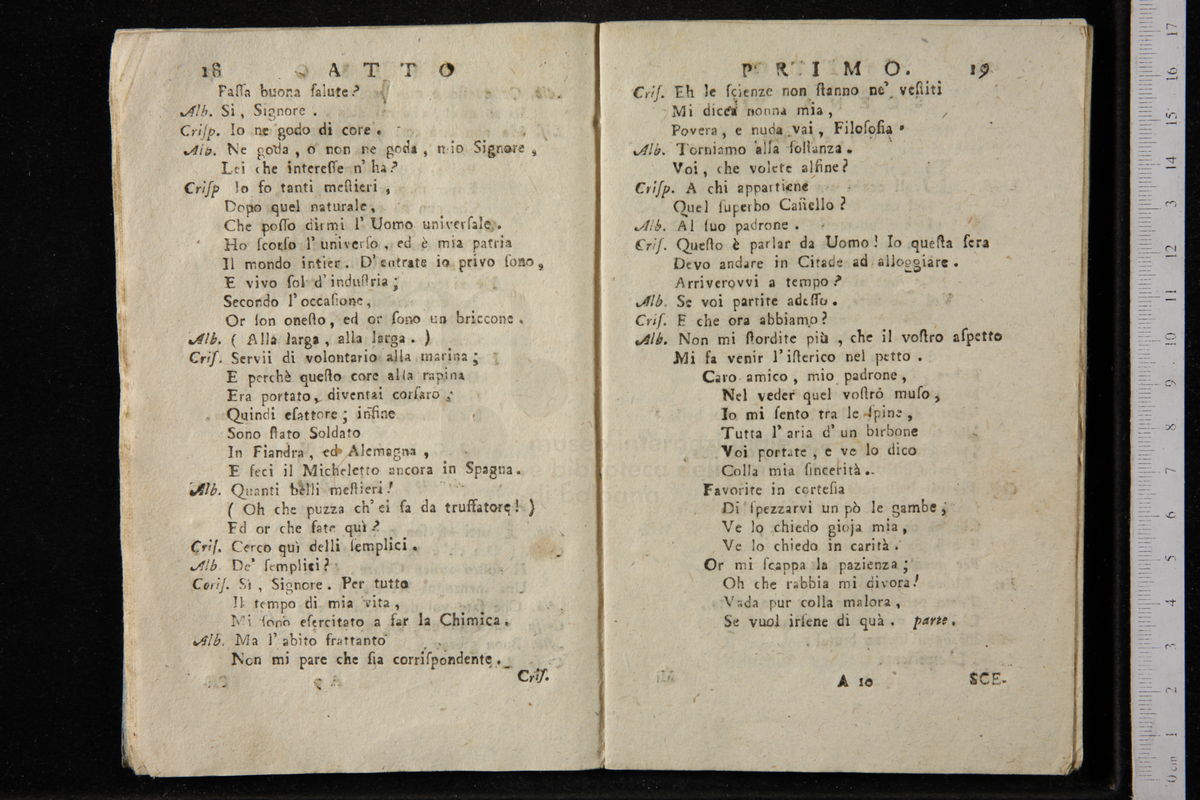 18 ATTO
Paſſa buona ſalute?
Alb. Si, Signore.
Criſp. Io ne godo di core.
Alb. Ne goda, o non ne goda, mio Signore,
Lei che intereſſe n' ha?
Criſp Io fo tanti meſtieri,
Dopo quel naturale,
Che poſſo dirmi l' Uomo univerſale.
Ho ſcorſo l' univerſo, ed è mia patria
Il mondo intier. D' entrate io privo ſono,
E vivo ſol d' induſtria;
Secondo l' occaſione,
Or ſon oneſto, ed or ſono un briccone.
Alb. ( Alla larga, alla larga. )
Criſ. Servii di volontario alla marina;
E perchè queſto core alla rapina
Era portato, diventai corſaro;
Quindi eſattore; infine
Sono ſtato Soldato
In Fiandra, ed Alemagna,
E feci il Micheletto ancora in Spagna.
Alb. Quanti belli meſtieri!
( Oh che puzza ch' ei fa da truffatore! )
Ed or che fate quì?
Criſ. Cerco quì delli ſemplici.
Alb. De' ſemplici?
Coriſ. Sì, Signore. Per tutto
Il tempo di mia vita,
Mi ſono eſercitato a far la Chimica.
Alb. Ma l' abito frattanto
Non mi pare che ſia corriſpondente.
Criſ.
PRIMO. 19
Criſ. Eh le ſcienze non ſtanno ne' veſtiti
Mi dicea nonna mia,
Povera, e nuda vai, Filoſofia.
Alb. Torniamo alla ſoſtanza.
Voi, che volete alfine?
Criſp. A chi appartiene
Quel ſuperbo Caſtello?
Alb. Al ſuo padrone.
Criſ. Queſto è parlar da Uomo! Io queſta ſera
Devo andare in Citade ad alloggiare.
Arriverovvi a tempo?
Alb. Se voi partite adeſſo.
Criſ. E che ora abbiamo?
Alb. Non mi ſtordite più, che il voſtro aſpetto
Mi fa venir l' iſterico nel petto.
Caro amico, mio padrone,
Nel veder quel voſtro muſo,
Io mi ſento tra le ſpine,
Tutta l' aria d' un birbone
Voi portate, e ve lo dico
Colla mia ſincerità.
Favorite in corteſia
Di ſpezzarvi un pò le gambe,
Ve lo chiedo gioja mia,
Ve lo chiedo in carità.
Or mi ſcappa la pazienza;
Oh che rabbia mi divora!
Vada pur colla malora,
Se vuol irſene di quà. parte.
A 10 SCE-